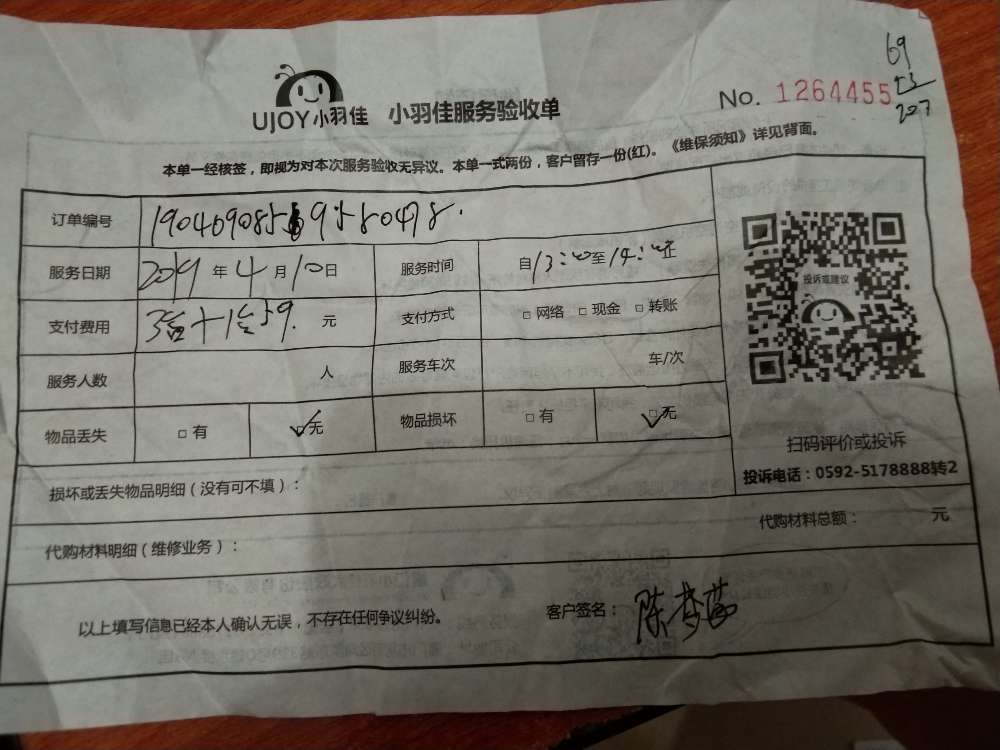 69
207
No. 1264455
UJOY小羽佳 小羽佳服务验收单
本单一经核签，即视为对本次服务验收无异议。本单一式两份，客户留存一份(红)。《维保须知》详见背面。
订单编号
服务日期 2019 年 4 月 10 日 服务时间 自13:00至14:00止
支付费用 元 支付方式 □ 网络 □ 现金 □ 转账
服务人数 人 服务车次 车/次
物品丢失 □ 有 □ 无 物品损坏 □ 有 □ 无
投诉或建议
扫码评价或投诉
投诉电话：0592-5178888转2
损坏或丢失物品明细（没有可不填）：
代购材料明细（维修业务）： 代购材料总额： 元
以上填写信息已经本人确认无误，不存在任何争议纠纷。 客户签名：陈梦茹